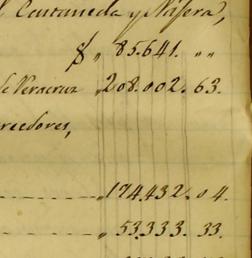 l Castaneda y Náfera,
$ „ 85.641. „„
de Veracruz „ 208.002. 63.
reedores,
„ 174.432. 04.
„ 53.333. 33.